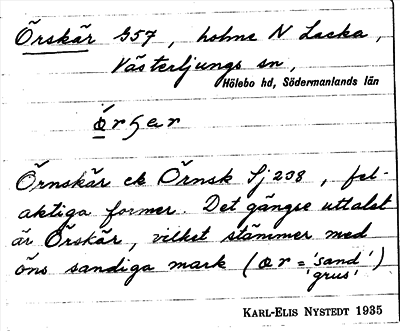 Örskär G57, holme N Lacka,
Västerljungs sn,
Hölebo hd, Södermanlands län
Örnskär ek Örnsk Sj 238, fel-
aktiga former. Det gängse uttalet
är Örskär, vilket stämmer med
öns sandiga mark (ør = 'sand'
'grus')
KARL-ELIS NYSTEDT 1935